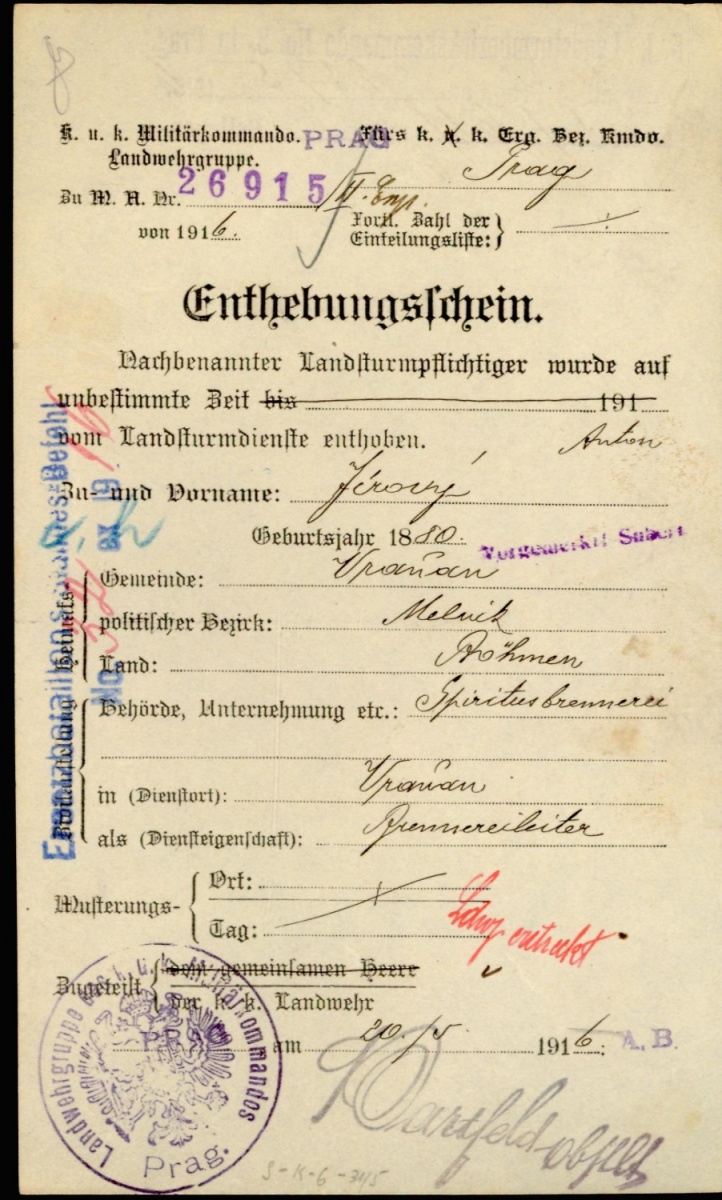 K. u. k. Militärkommando. PRAG Fürs k. u. k. Erg. Bez. Kmdo.
Landwehrgruppe. Prag
Zu M. A. Nr. 26915/II.
von 1916.
Fortl. Zahl der
Einteilungsliste:
Enthebungsschein.
Nachbenannter Landsturmpflichtiger wurde auf
unbestimmte Zeit bis 191
vom Landsturmdienste enthoben.
Anton
Zu- und Vorname: Jirový
Geburtsjahr 1880.
Vorgemerkt!
Heimats-
Gemeinde: Vraňan
politischer Bezirk: Melnik
Land: Böhmen
Behörde, Unternehmung etc.: Spiritusbrennerei
in (Dienstort): Vraňan
als (Diensteigenschaft): Brennereileiter
Musterungs-
Ort:
Tag:
Zugeteilt
dem gemeinsamen Heere
der k. k. Landwehr
PRAG am 20/5 1916. A.B.
Landwehrgruppe des k. u. k. Militärkommandos
Prag.